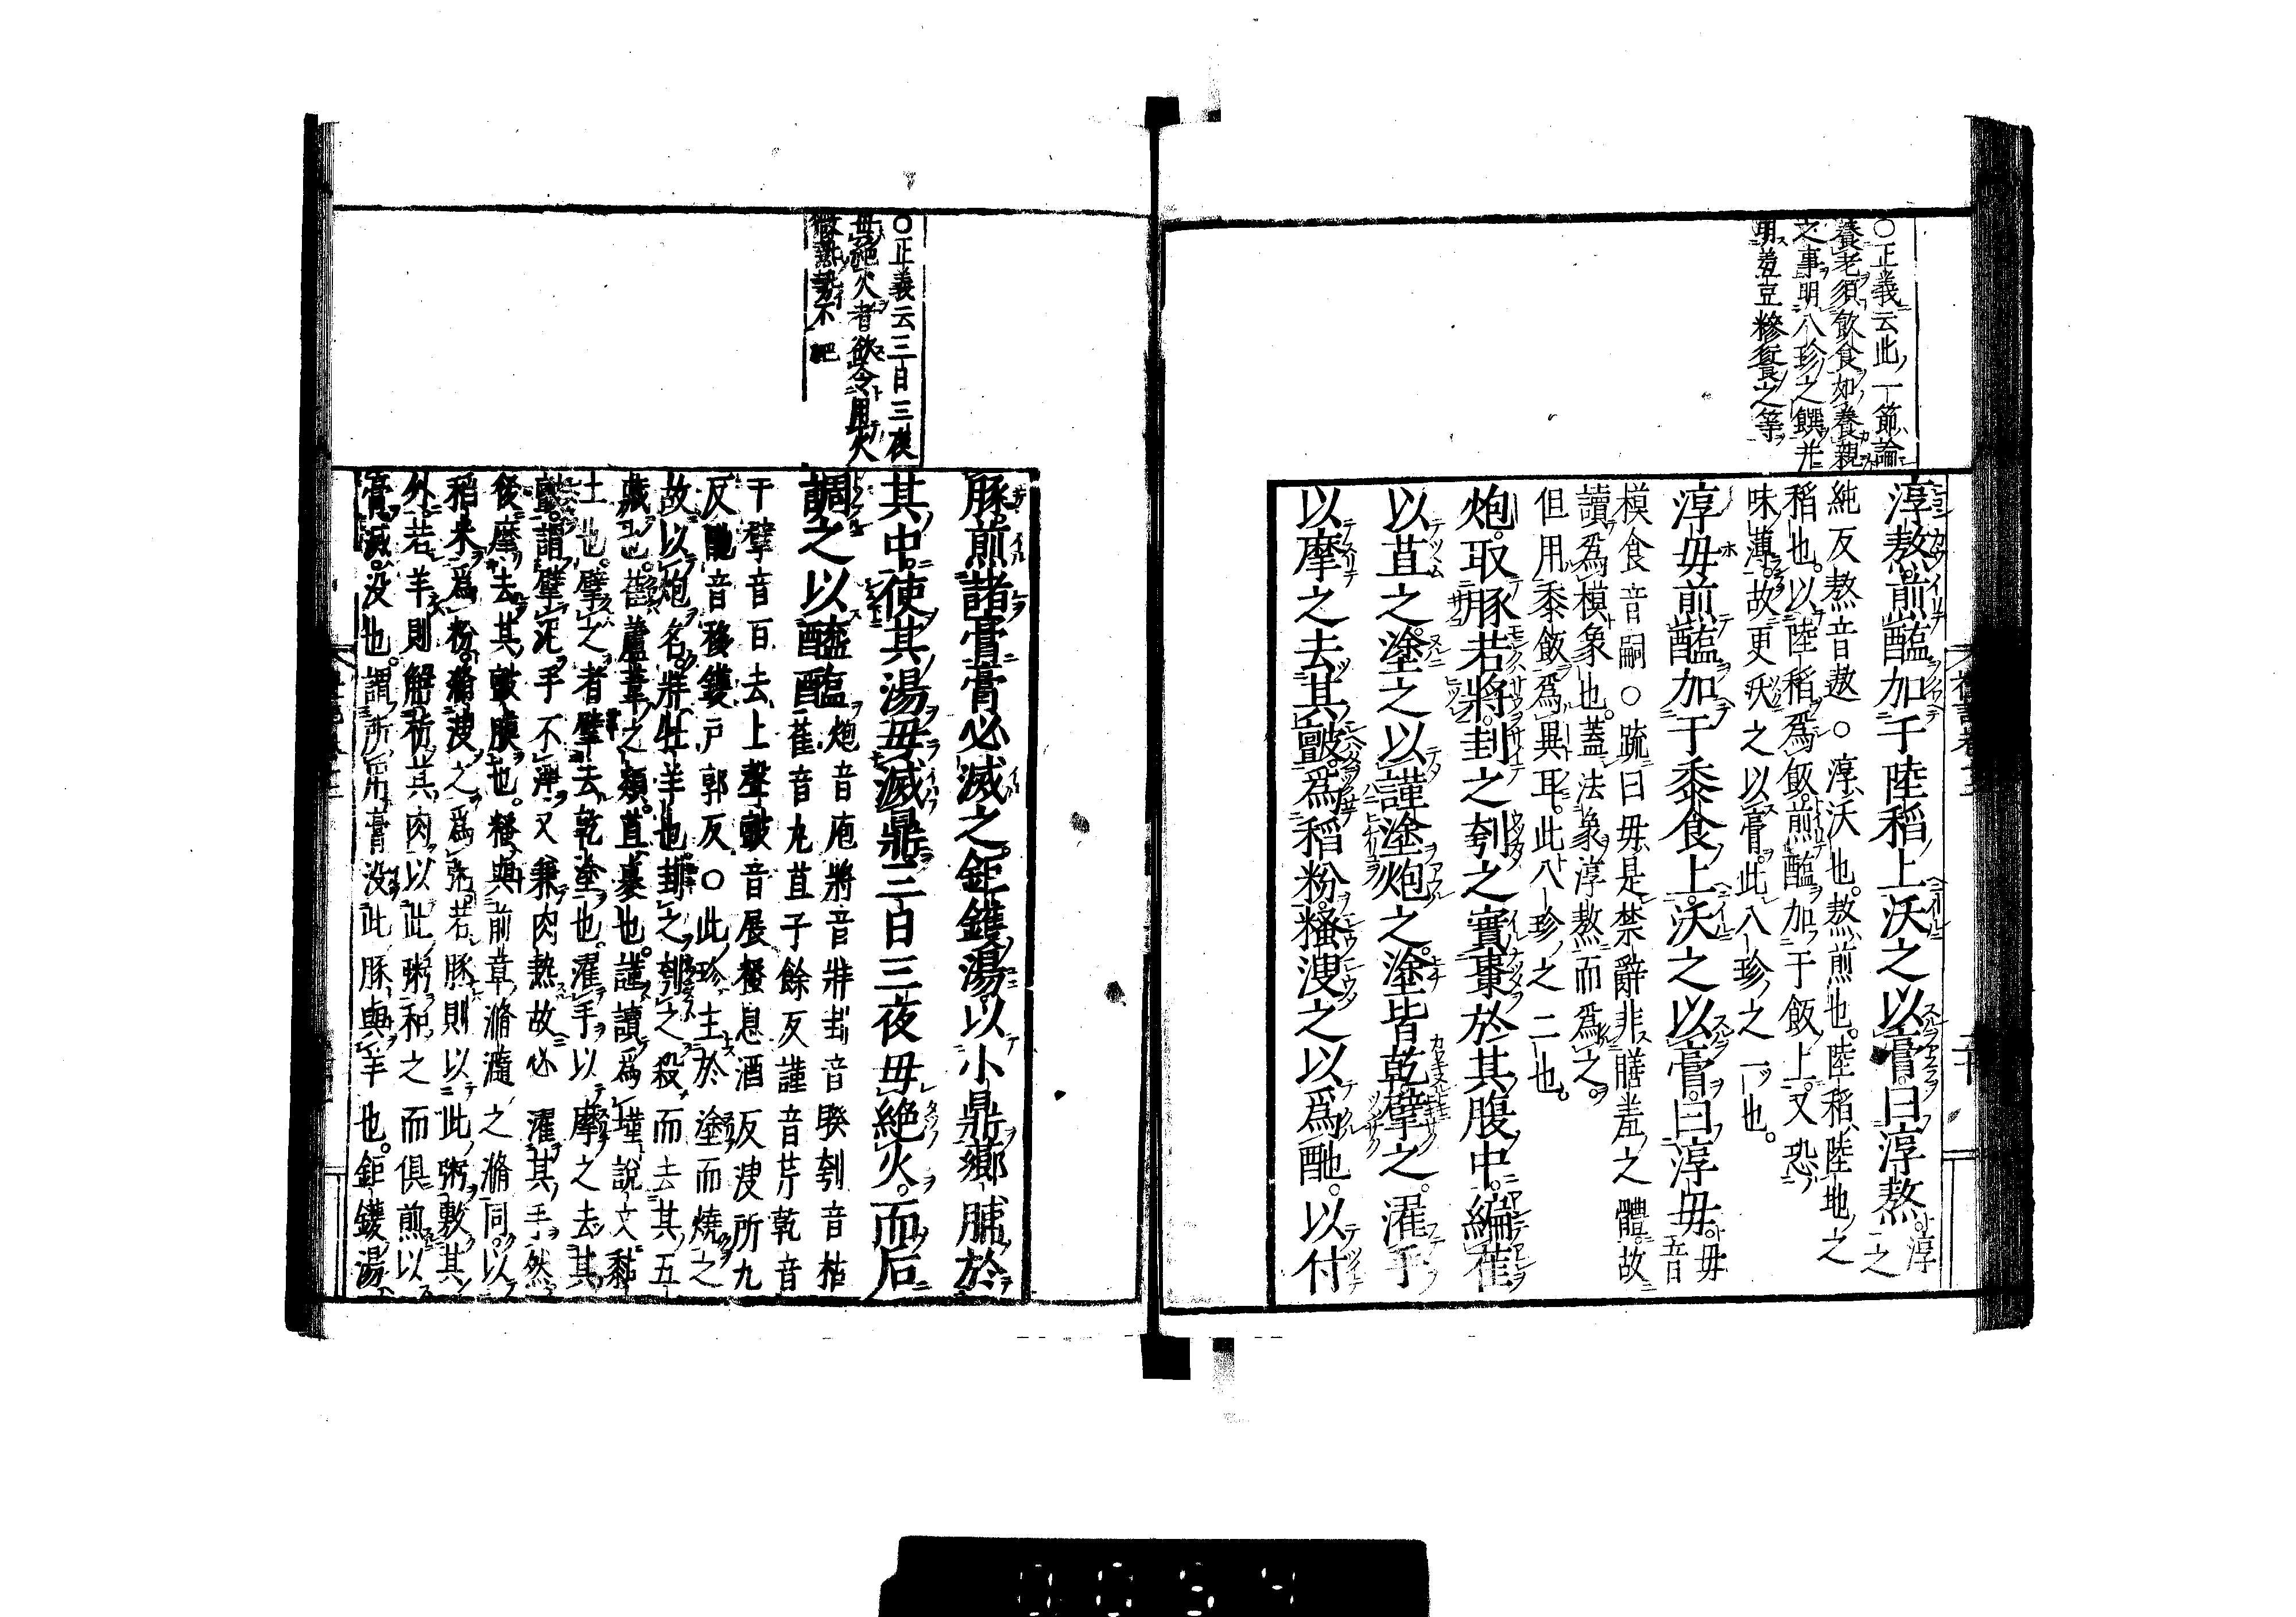 ○正義云此一節論
養老須飲食如養親
之事明八珍之饌并
明羞豆糝餐之等
淳熬煎醢加于陸稻上沃之以膏曰淳熬淳之
純反熬音遨○淳沃也熬煎也陸稻陸地之
稻也以陸稻爲飯煎醢加于飯上又恐
味薄故更沃之以膏此八珍之一也
淳毋煎醢加于黍食上沃之以膏曰淳毋毋音
模食音嗣○疏曰毋是禁辭非膳羞之體故
讀爲模模象也蓋法象淳熬而爲之
但用黍飯爲異耳此八珍之二也
炮取豚若將刲之刳之實棗於其腹中編萑
以苴之塗之以謹塗炮之塗皆乾擘之濯手
以摩之去其皽爲稻粉糔溲之以爲酏以付
○正義云三日三夜
毋絶火者欲令用火
微熱勢不
豚煎諸膏膏必滅之鉅鑊湯以小鼎薌脯於
其中使其湯毋滅鼎三日三夜毋絶火而后
調之以醯醢炮音庖將音牂刲音睽刳音枯
萑音丸苴子餘反謹音芹乾音
干擘音百去上聲皽音展糔息酒反溲所九
反酏音移鑊戸郭反○此珍主於塗而燒之
故以炮名牂牡羊也刲之刳之殺而去其五
藏也萑蘆葦之類苴裹也謹讀爲墐說文黏
土也擘之者擘去乾塗也濯手以摩之去其
皽謂擘泥手不淨又兼肉熱故必濯其手然
後摩去其皽膜也糔與前章滫瀡之滫同以
稻米爲粉滫溲之爲粥若豚則以此粥敷其
外若羊則解析其肉以此粥和之而俱煎以
膏滅没也謂所用膏没此豚與羊也鉅鑊湯